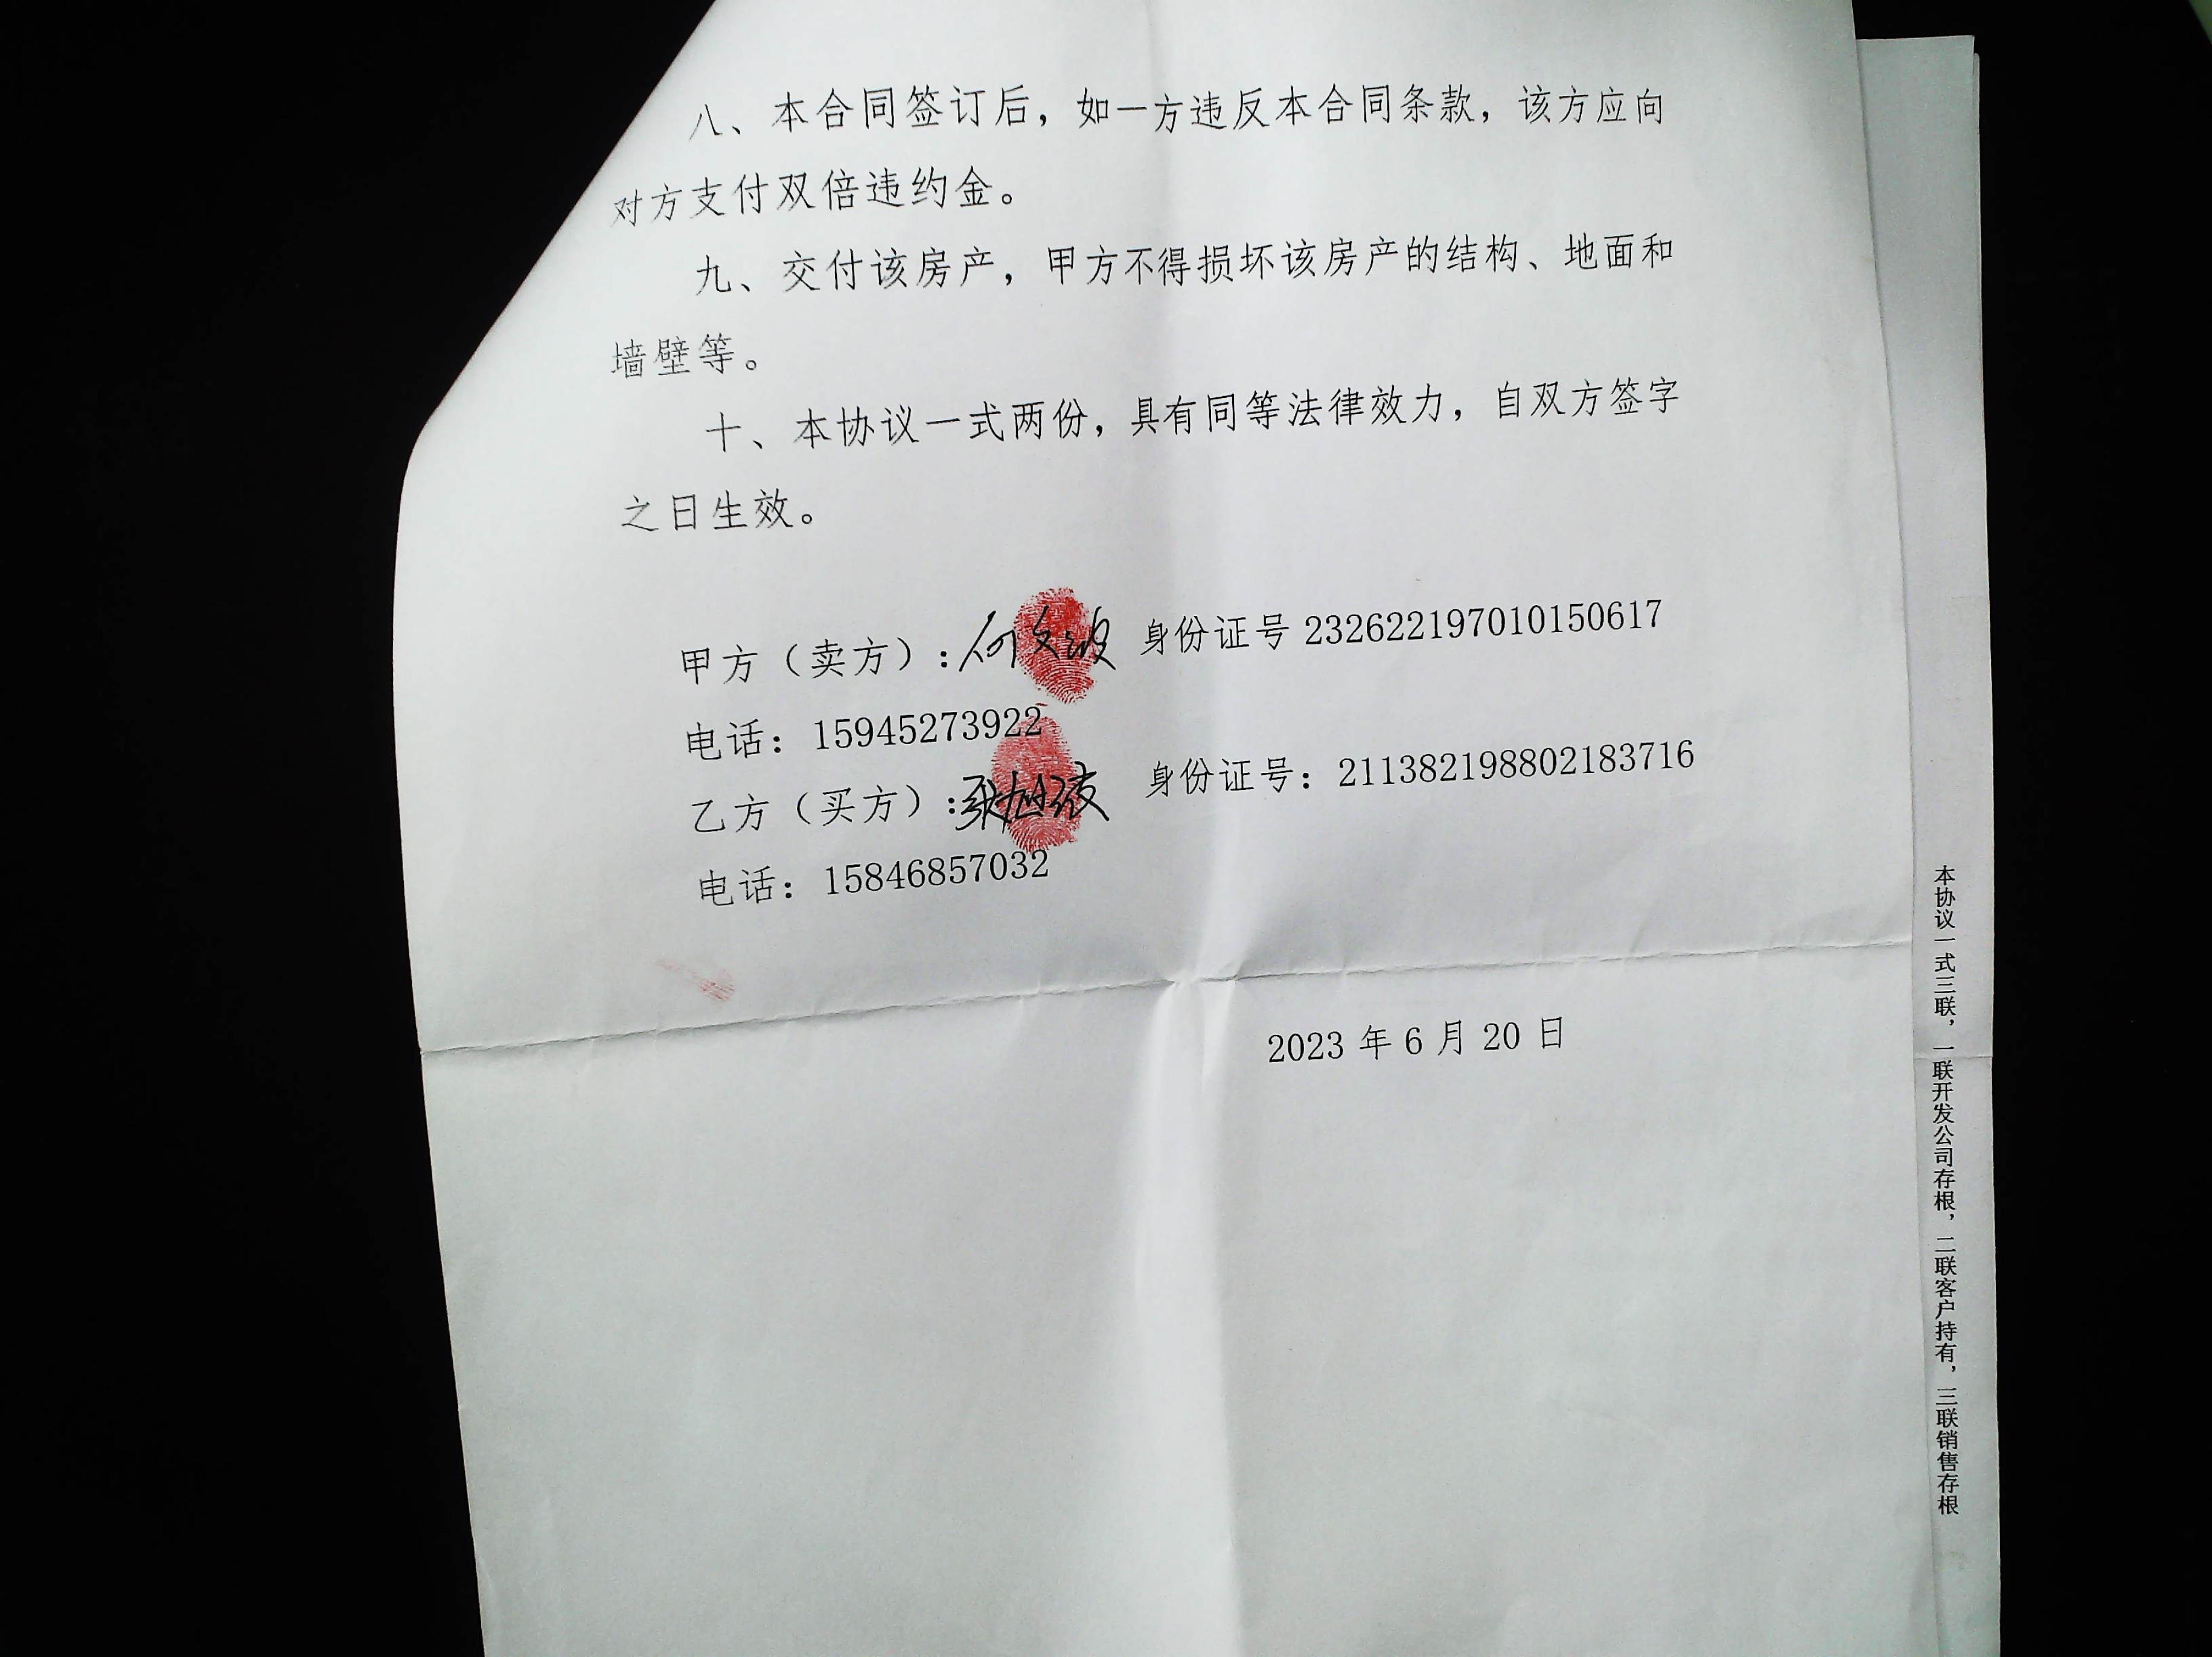 八、本合同签订后，如一方违反本合同条款，该方应向
对方支付双倍违约金。
九、交付该房产，甲方不得损坏该房产的结构、地面和
墙壁等。
十、本协议一式两份，具有同等法律效力，自双方签字
之日生效。
甲方（卖方）：何文波 身份证号 232622197010150617
电话：15945273922
乙方（买方）： 身份证号：211382198802183716
电话：15846857032
2023 年 6 月 20 日
本协议一式三联，一联开发公司存根，二联客户持有，三联销售存根